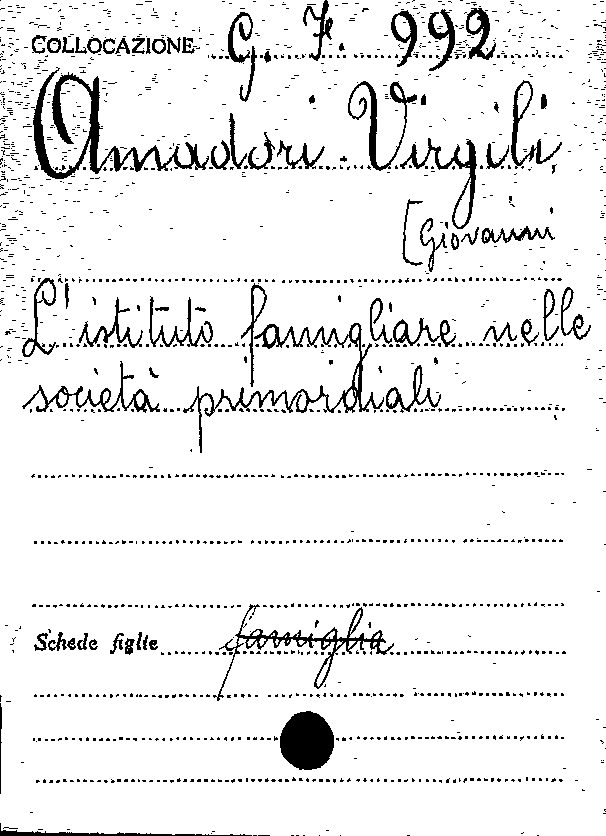 COLLOCAZIONE G. F. 992
Amadori-Virgili,
[Giovanni
L'istituto famigliare nelle
società primordiali
Schede figlie famiglia